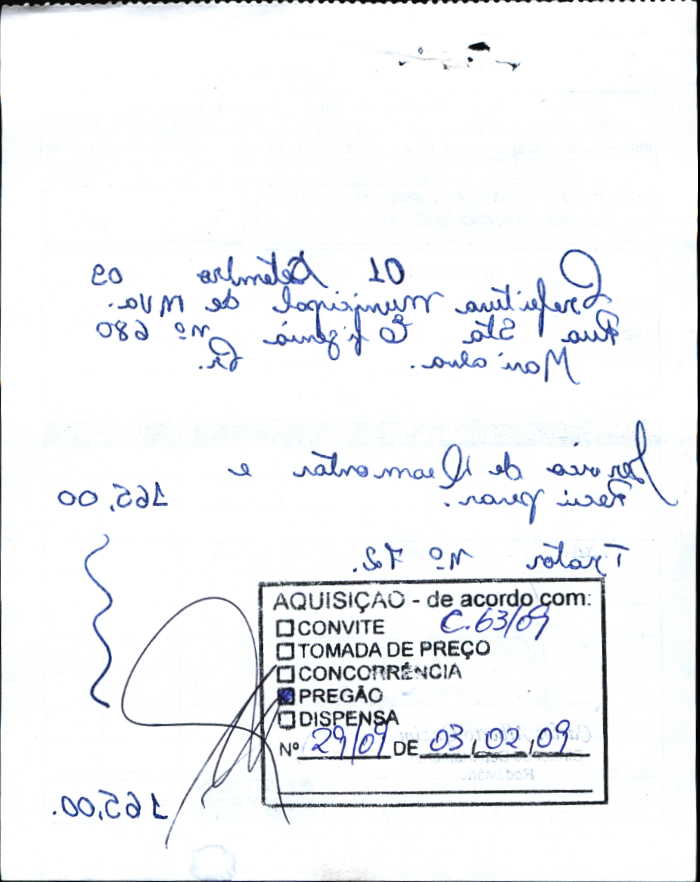 01 Setembro 09
Prefeitura Municipal de Mva.
Rua Sta Efigenia nº 680
Marialva. Pr.
Serviço de Desmontar e
Recuperar. 165,00
Trator Nº 72.
AQUISIÇÃO - de acordo com:
CONVITE C.63/09
TOMADA DE PREÇO
CONCORRÊNCIA
PREGÃO
DISPENSA
Nº 29/09 DE 03, 02, 09
165,00.